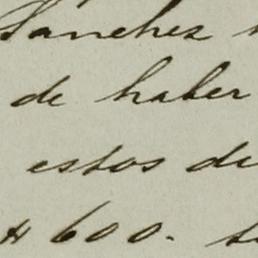 Sánchez
de haber
estos di
$ 600.